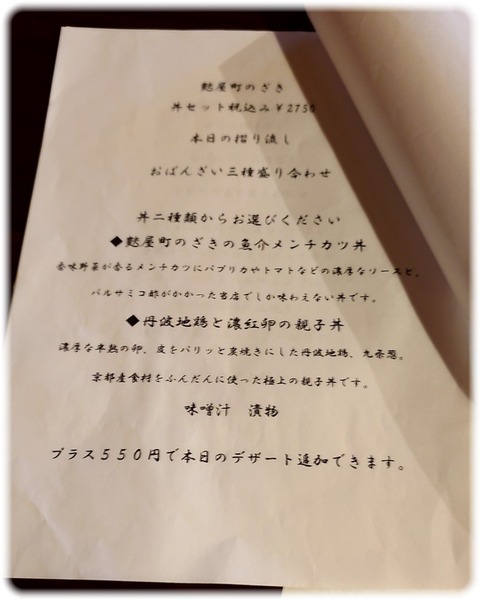 麩屋町のざき
丼セット税込み￥2750
本日の摺り流し
おばんざい三種盛り合わせ
丼二種類からお選びください
◆麩屋町のざきの魚介メンチカツ丼
香味野菜が香るメンチカツにパプリカやトマトなどの濃厚なソースと、
バルサミコ酢がかかった当店でしか味わえない丼です。
◆丹波地鶏と濃紅卵の親子丼
濃厚な半熟の卵、皮をパリッと炭焼きにした丹波地鶏、九条葱。
京都産食材をふんだんに使った極上の親子丼です。
味噌汁　漬物
プラス５５０円で本日のデザート追加できます。